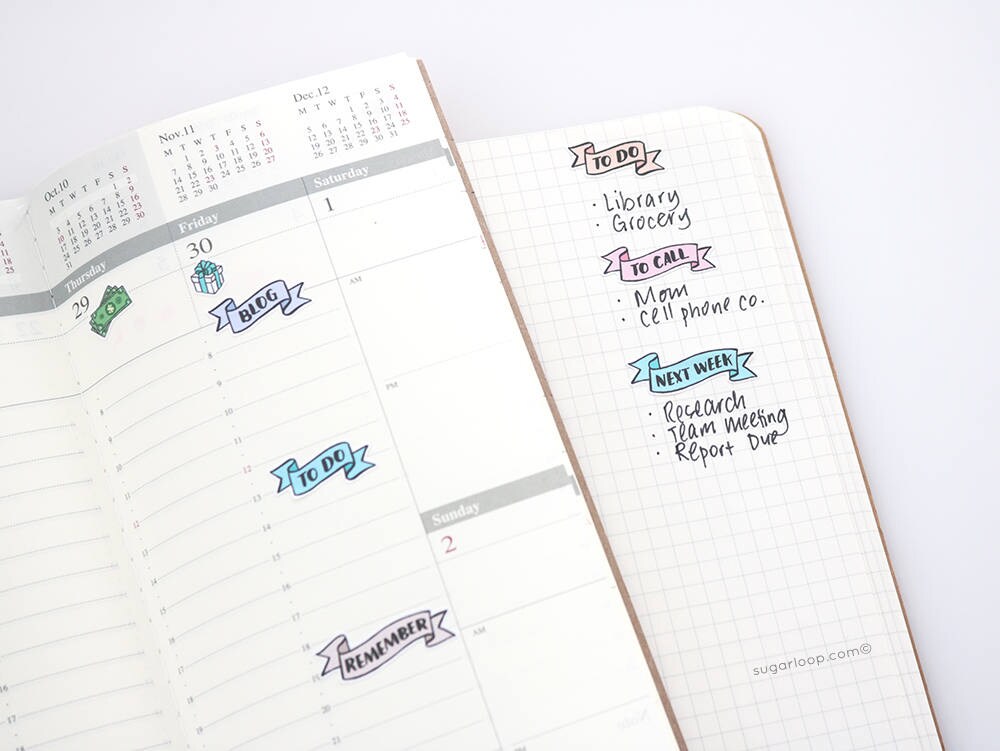 Oct.10
M T W T F S S
1 2
3 4 5 6 7 8 9
10 11 12 13 14 15 16
17 18 19 20 21 22 23
24 25 26 27 28 29 30
31
Nov.11
M T W T F S S
1 2 3 4 5 6
7 8 9 10 11 12 13
14 15 16 17 18 19 20
21 22 23 24 25 26 27
28 29 30
Dec.12
M T W T F S S
1 2 3 4
5 6 7 8 9 10 11
12 13 14 15 16 17 18
19 20 21 22 23 24 25
26 27 28 29 30 31
Thursday
29
Friday
30
BLOG
8
9
10
11
12
13
TO DO
14
15
16
17
18
REMEMBER
19
20
21
12
13
14
15
16
17
18
19
20
21
Saturday
1
AM
PM
Sunday
2
AM
PM
TO DO
· Library
· Grocery
TO CALL
· Mom
· Cell phone co.
NEXT WEEK
· Research
· Team Meeting
· Report Due
sugarloop.com©